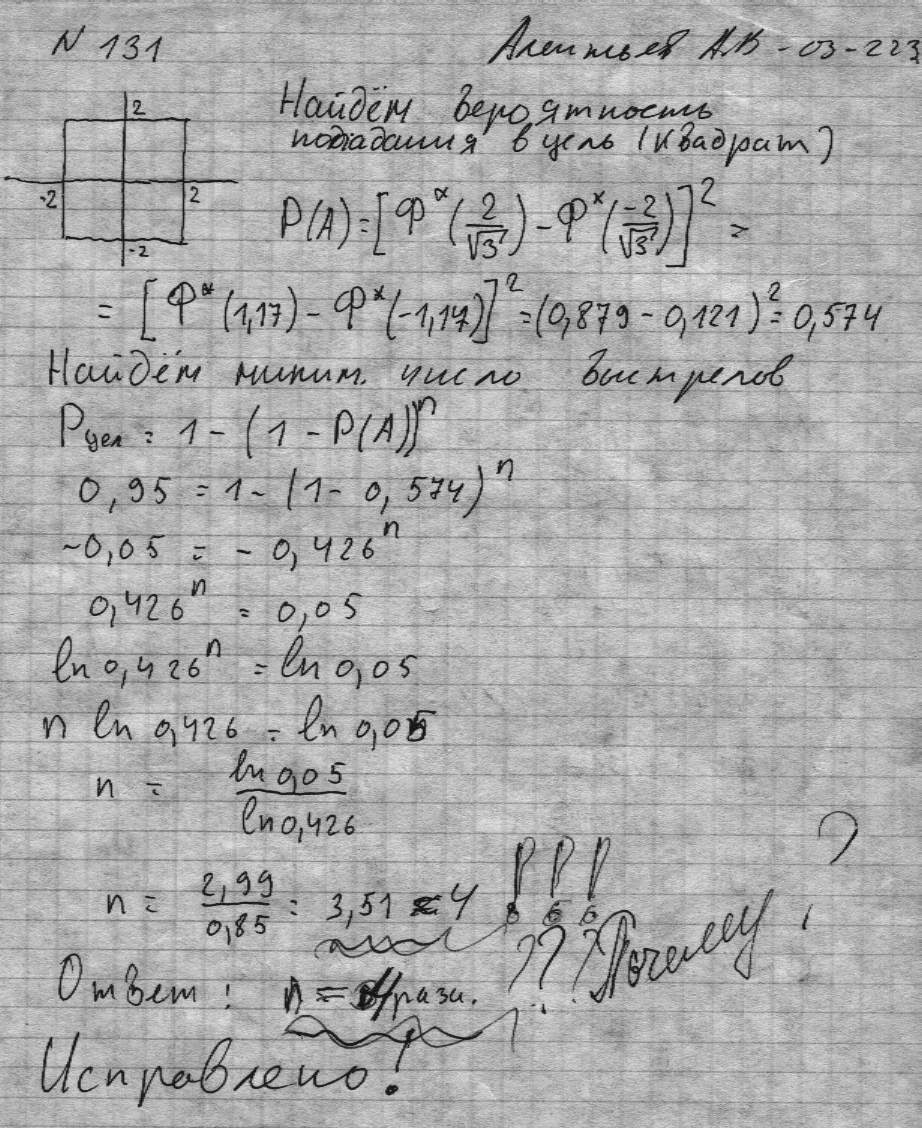 N 131
АВ-03-223
2
-2 2
-2
Найдём вероятность
попадания в цель (квадрат)
P(A) = [Ф*(2/√3) - Ф*(-2/√3)]² =
= [Ф*(1,17) - Ф*(-1,17)]² = (0,879 - 0,121)² = 0,574
Найдём миним. число выстрелов
Pцел = 1 - (1 - P(A))ⁿ
0,95 = 1 - (1 - 0,574)ⁿ
-0,05 = - 0,426ⁿ
0,426ⁿ = 0,05
ln 0,426ⁿ = ln 0,05
n ln 0,426 = ln 0,05
n = ln 0,05 / ln 0,426
n = 2,99 / 0,85 = 3,51 ≈ 4 !!! ?
??? Почему
Ответ: n = 4 раза.
Исправлено!